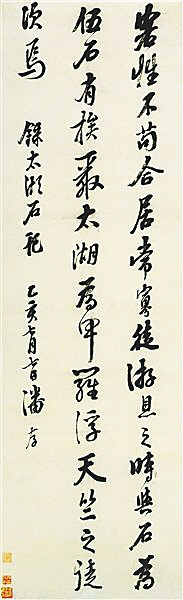 客性不苟合居常寡徒游息之時與石為
伍石有族聚太湖為甲羅浮天竺之徒
次焉 錄太湖石記 乙亥 潘存